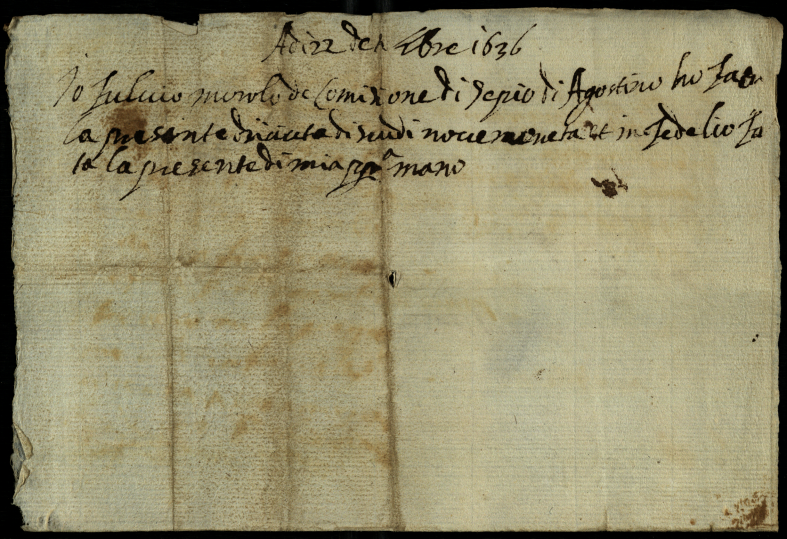 Adi 22 de 4bre 1636
Io fuluio morolo de Comisione di Sepio di Agostino ho fato
la presente riceuta di scudi noue moneta et in fede lio fa
ta la presente di mia ppa mano